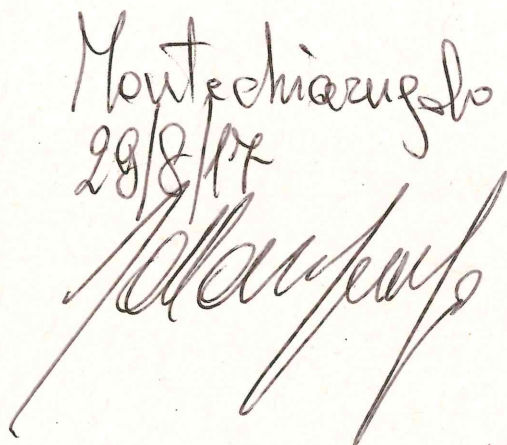 Montechiarugolo
29/8/17